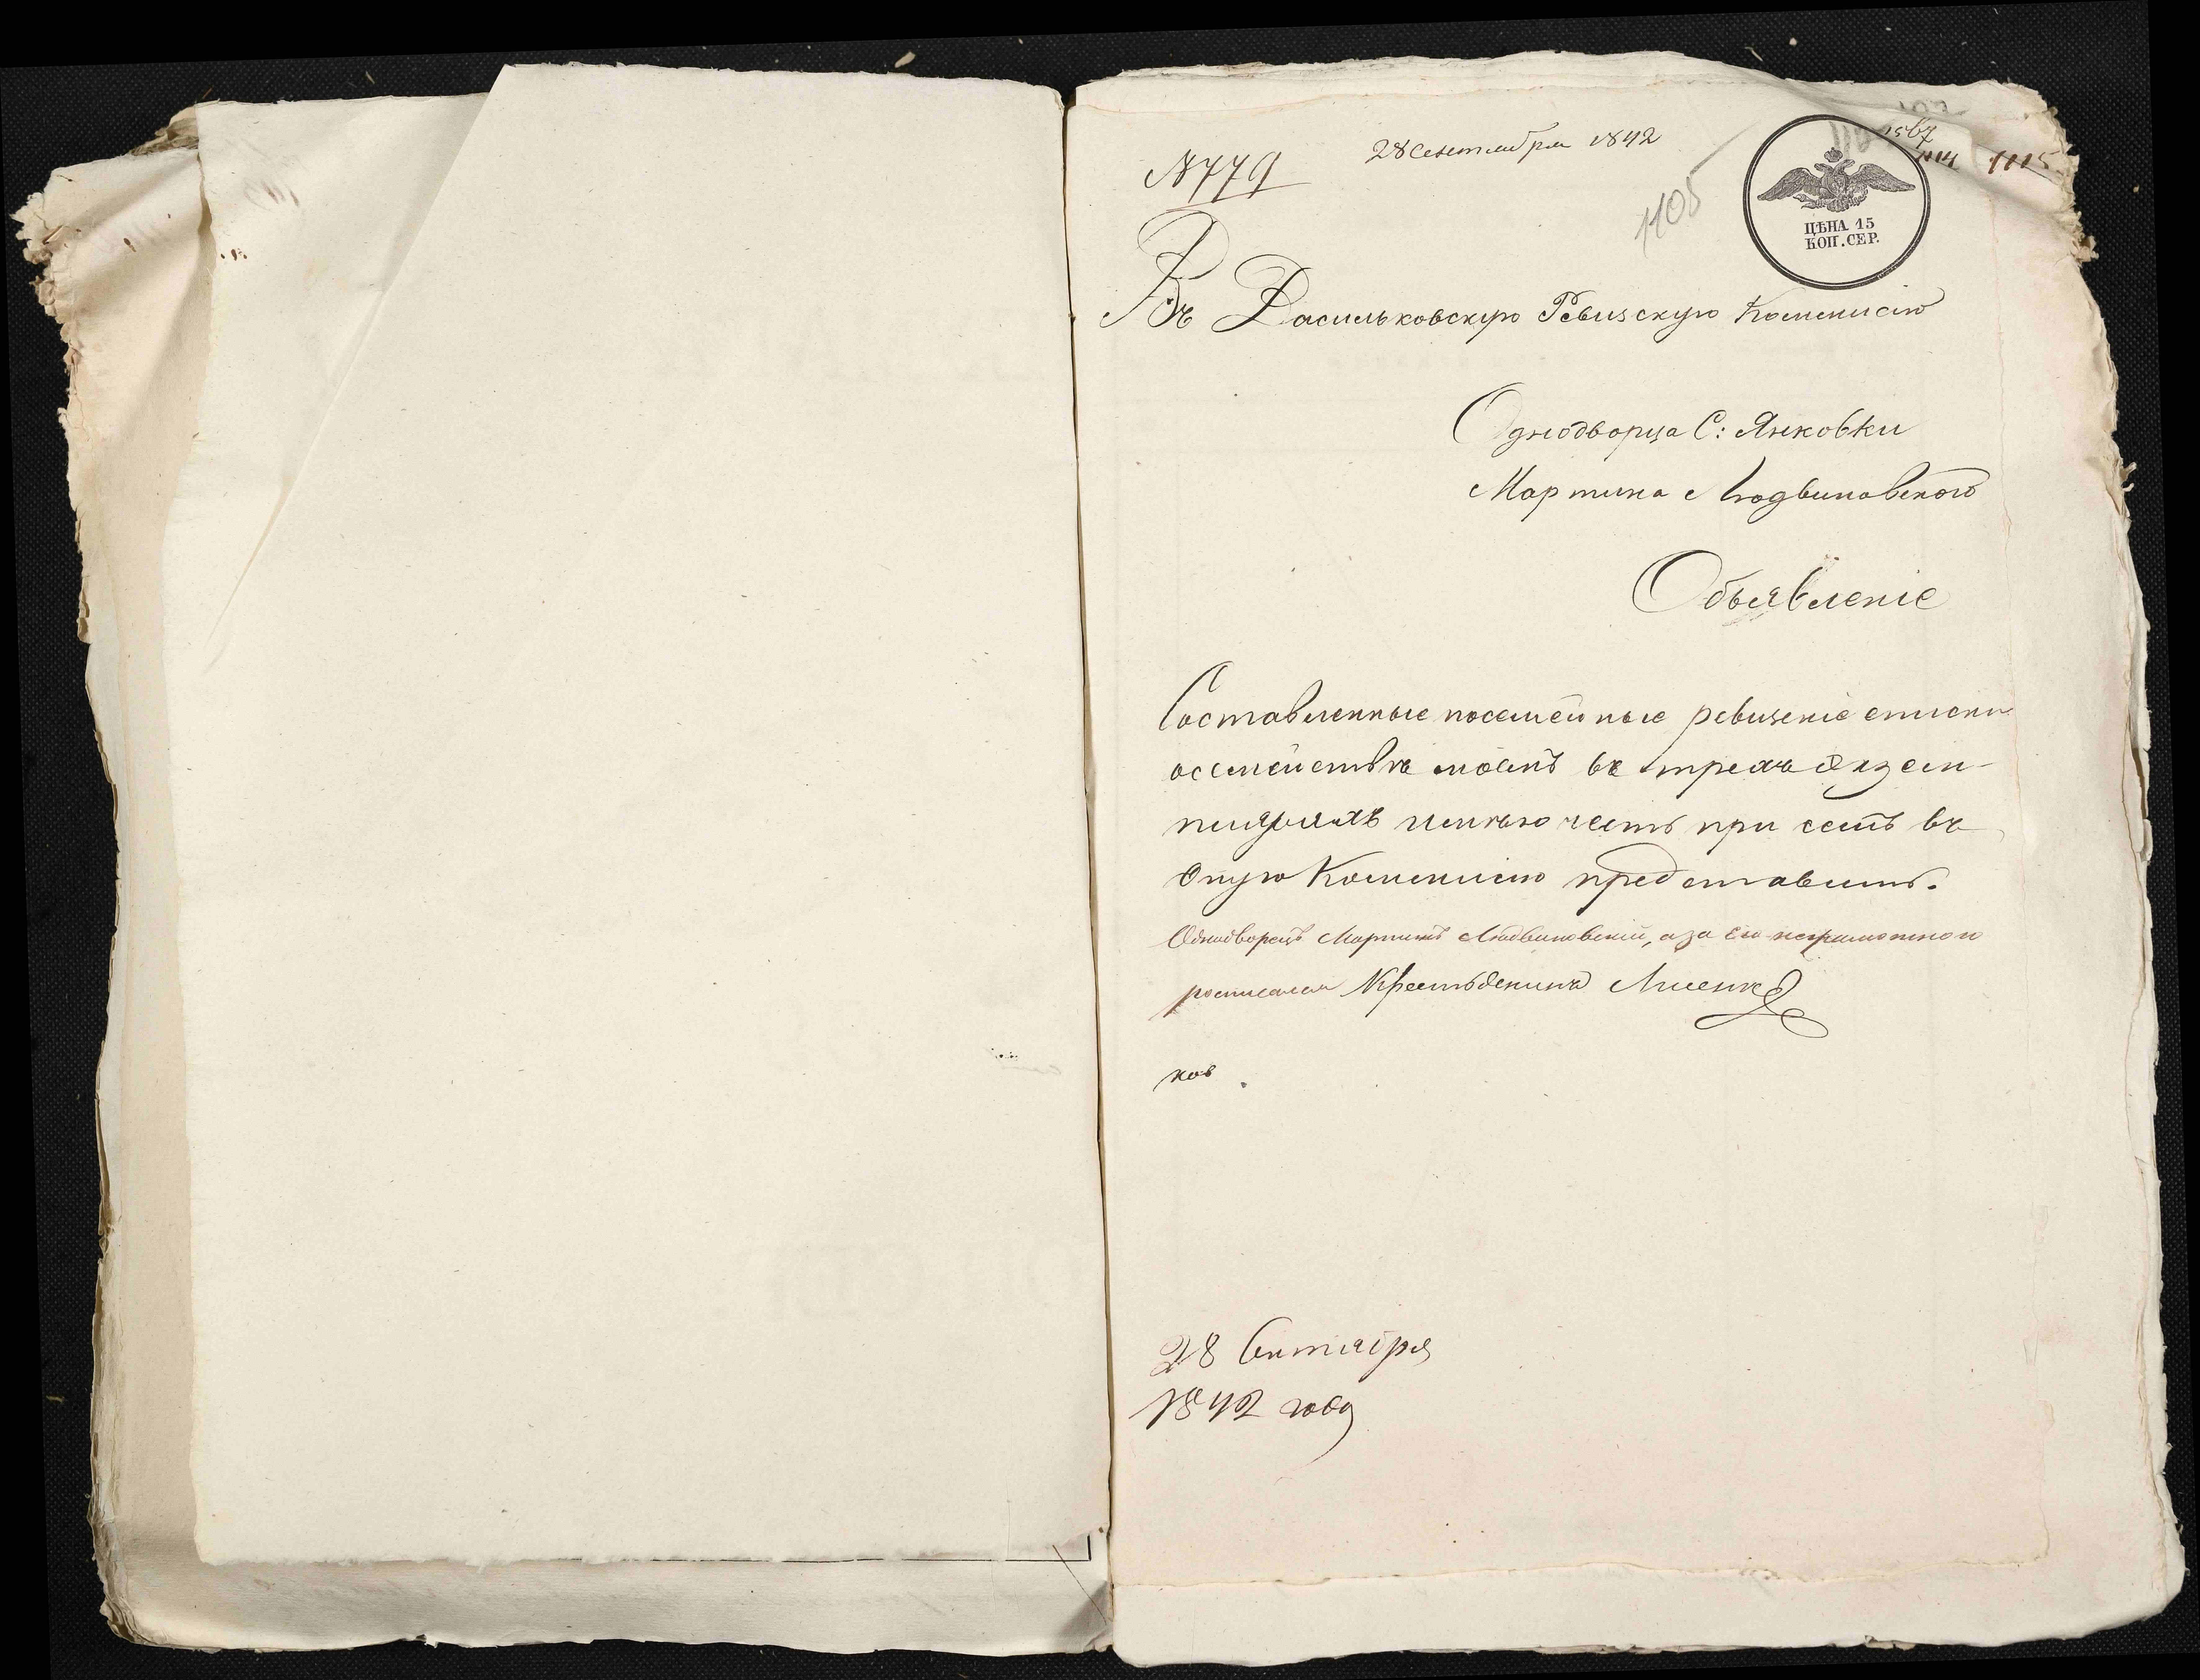 № 779
28 Сентября 1842
1567
1114 1115
1105
ЦѢНА 15
КОП. СЕР.
Въ Васильковскую Ревизскую Коммисію
Однодворца С: Янковки
Мартина Людвиновского
Объявленіе
Составленные посемейные ревизскіе списки
осемействѣ моемъ въ трехъ экзем-
плярахъ имѣю честь при семъ въ
Оную Коммисію представить.
Однодворецъ Мартинъ Людвиновскій, а за его неграмотного
росписался Крестьенинъ Лисенко
ков
28 Сентября
1842 года